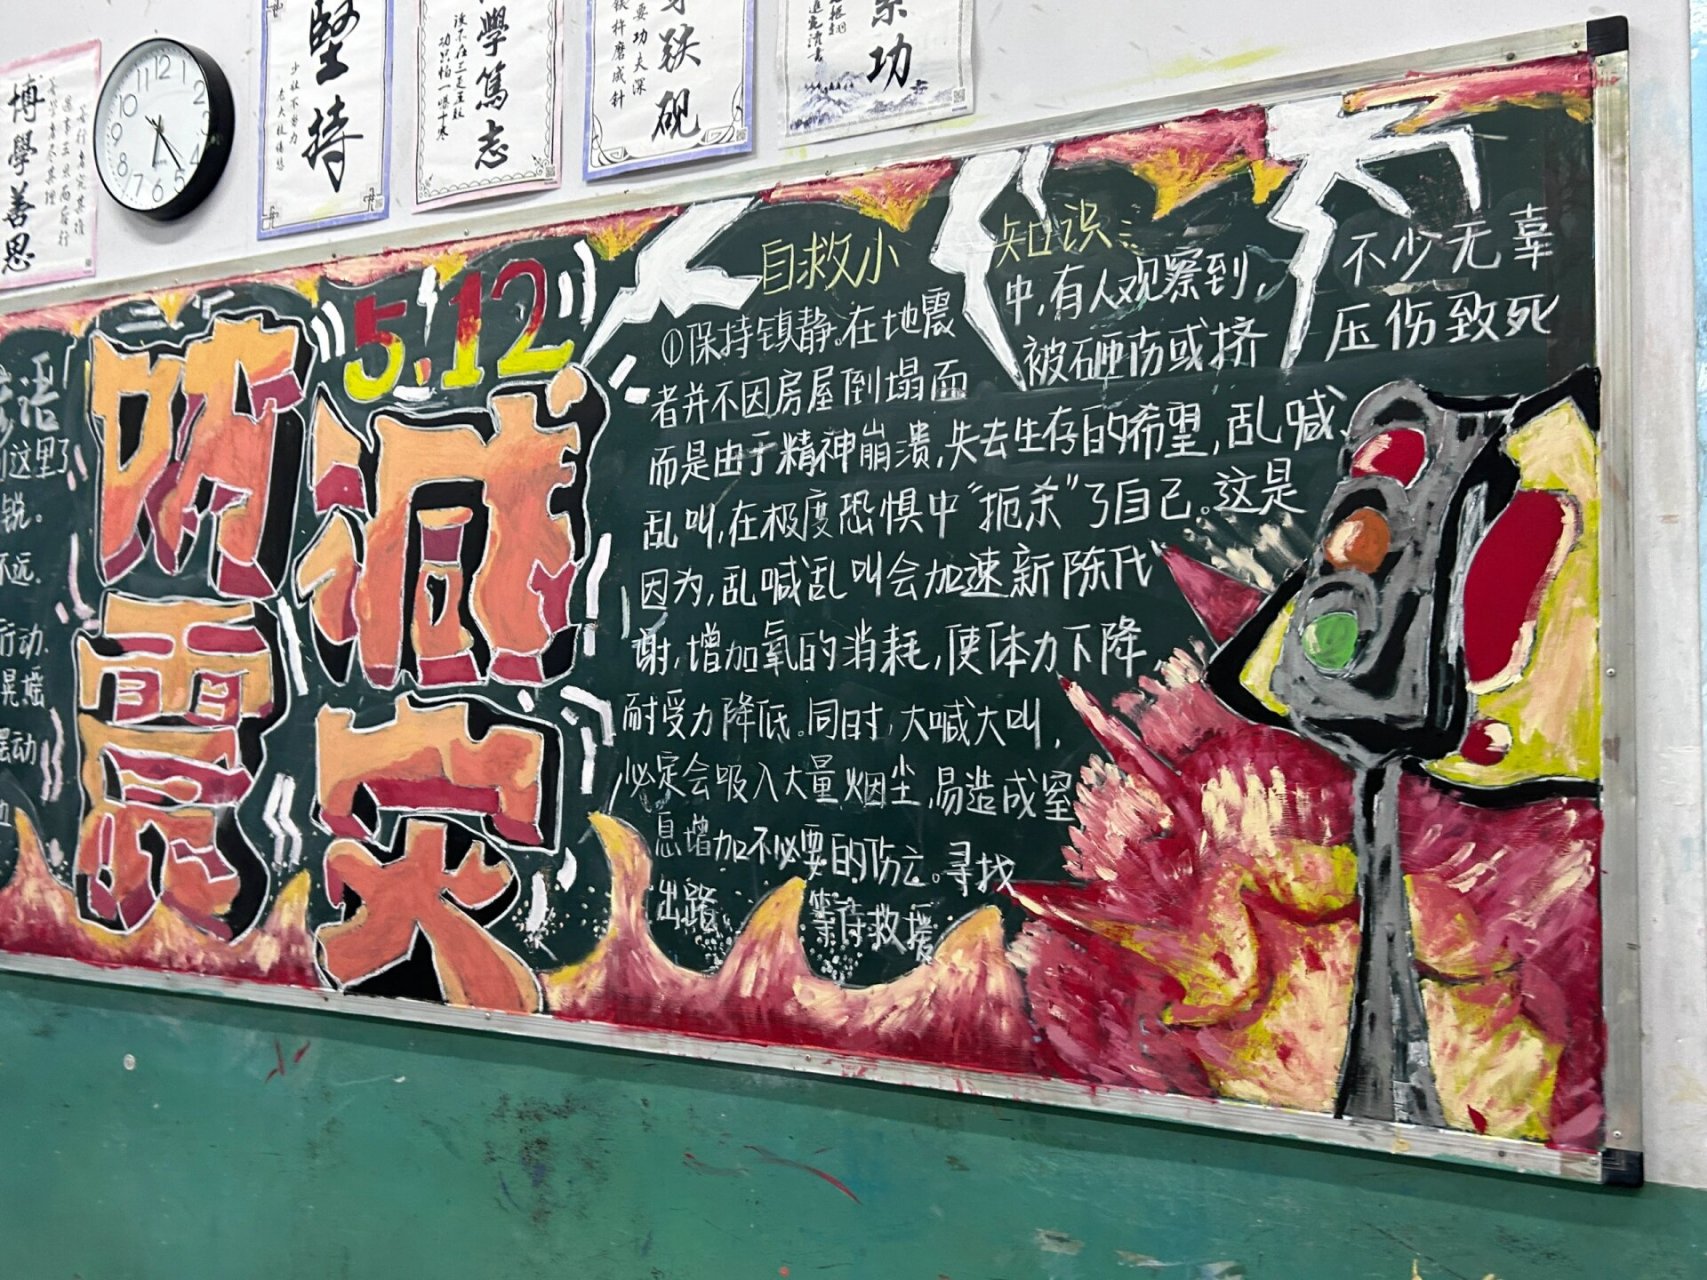 博學善思
12
11
1
10
2
9
3
8
4
7
5
6
堅持
少壯不努力
老大徒傷悲
學篤志
功只怕一曝十寒
鐵硯
要功夫深
鐵杵磨成針
功
語
这里了
锐。
不远.
行动.
晃摇
摆动
5.12
防震
减灾
自救小知识:
①保持镇静。在地震中,有人观察到,不少无辜
者并不因房屋倒塌而被砸伤或挤压伤致死
而是由于精神崩溃,失去生存的希望,乱喊、
乱叫,在极度恐惧中“扼杀”了自己。这是
因为,乱喊乱叫会加速新陈代
谢,增加氧的消耗,使体力下降,
耐受力降低。同时,大喊大叫,
必定会吸入大量烟尘,易造成窒
息增加不必要的伤亡。寻找
出路 等待救援